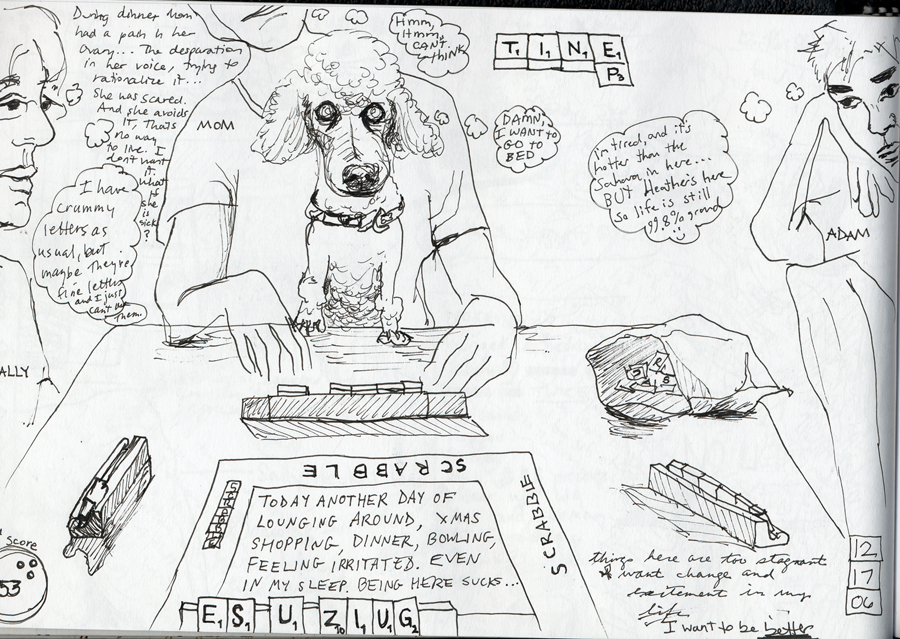 During dinner Mom
had a pain in her
ovary... The desparation
in her voice, trying to
rationalize it...
She was scared.
And she avoids
it. Thats
no way
to live. I
don't want
it. what
if
she
is
sick
?
I have
crummy
letters as
usual, but
maybe they're
fine letters
and I just
can't use
them.
ALLY
MOM
Hmm,
Hmm,
CAN'T
think
T1 I1 N1 E1
P3
DAMN,
I WANT TO
GO TO
BED
im tired, and it's
hotter than the
Sahara in here...
BUT Heather's here
so life is still
99.8% grand
ADAM
SCRABBLE
SCRABBLE
TODAY ANOTHER DAY OF
LOUNGING AROUND, XMAS
SHOPPING, DINNER, BOWLING,
FEELING IRRITATED. EVEN
IN MY SLEEP. BEING HERE SUCKS...
E1 S1 U1 Z10 L1 U1 G2
score
53
things here are too stagnant
want change and
excitement in my
life
I want to be better
12
17
06